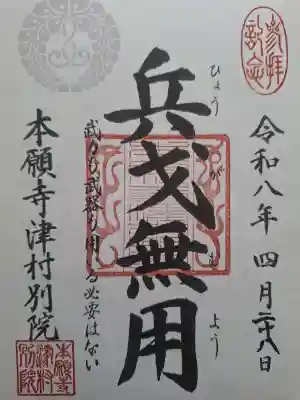 参拝
記念
令和八年 四月二十八日
兵戈無用
ひょう が む よう
武力も武器も用いる必要はない
本願寺津村別院
本願寺
津村
別院